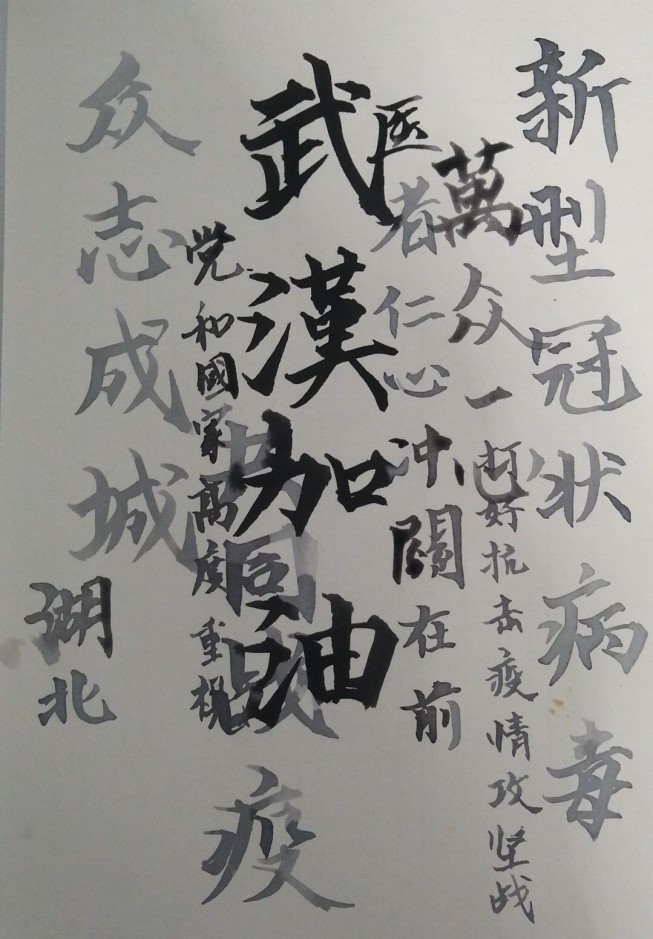 新型冠状病毒
萬众一心
打好抗击疫情攻坚战
医者仁心
冲闖在前
武漢加油
共同战疫
党和國家高度重視
众志成城
湖北